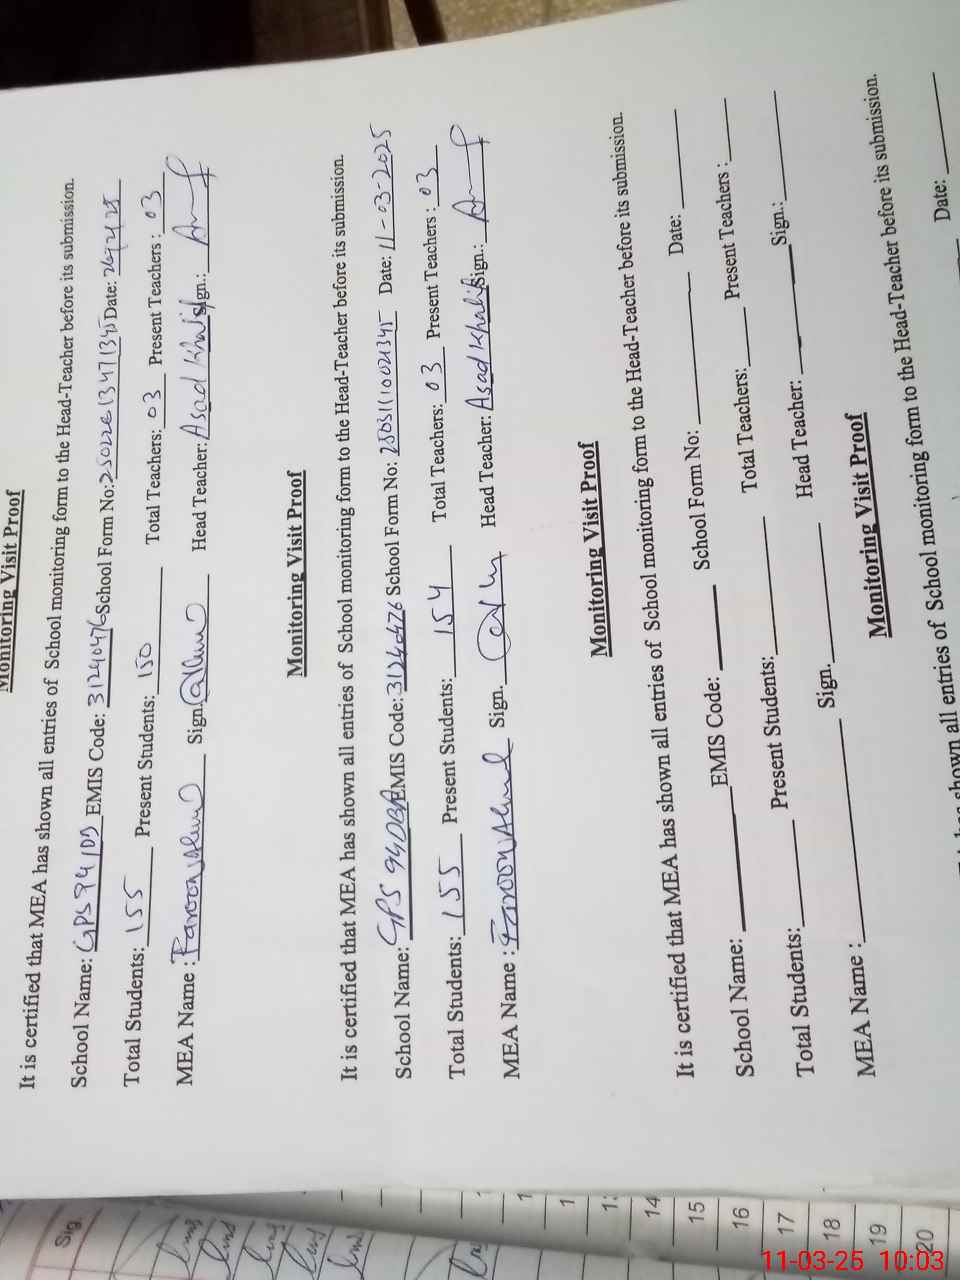 Monitoring Visit Proof
It is certified that MEA has shown all entries of School monitoring form to the Head-Teacher before its submission.
School Name: GPS 94 1DB EMIS Code: 31240476 School Form No: Date:
Total Students: 155 Present Students: 150 Total Teachers: 03 Present Teachers: 03
MEA Name : Farooq Ahmed Sign. Head Teacher: Asad Khalil Sign.:
Monitoring Visit Proof
It is certified that MEA has shown all entries of School monitoring form to the Head-Teacher before its submission.
School Name: GPS 94DBA EMIS Code: 31240476 School Form No: Date: 11-03-2025
Total Students: 155 Present Students: 154 Total Teachers: 03 Present Teachers: 03
MEA Name : Farooq Ahmed Sign. Head Teacher: Asad Khalil Sign.:
Monitoring Visit Proof
It is certified that MEA has shown all entries of School monitoring form to the Head-Teacher before its submission.
School Name: EMIS Code: School Form No: Date:
Total Students: Present Students: Total Teachers: Present Teachers :
MEA Name : Sign. Head Teacher: Sign.:
Monitoring Visit Proof
shown all entries of School monitoring form to the Head-Teacher before its submission.
Date:
Sig.
14
15
16
17
18
19
20
11-03-25 10:03